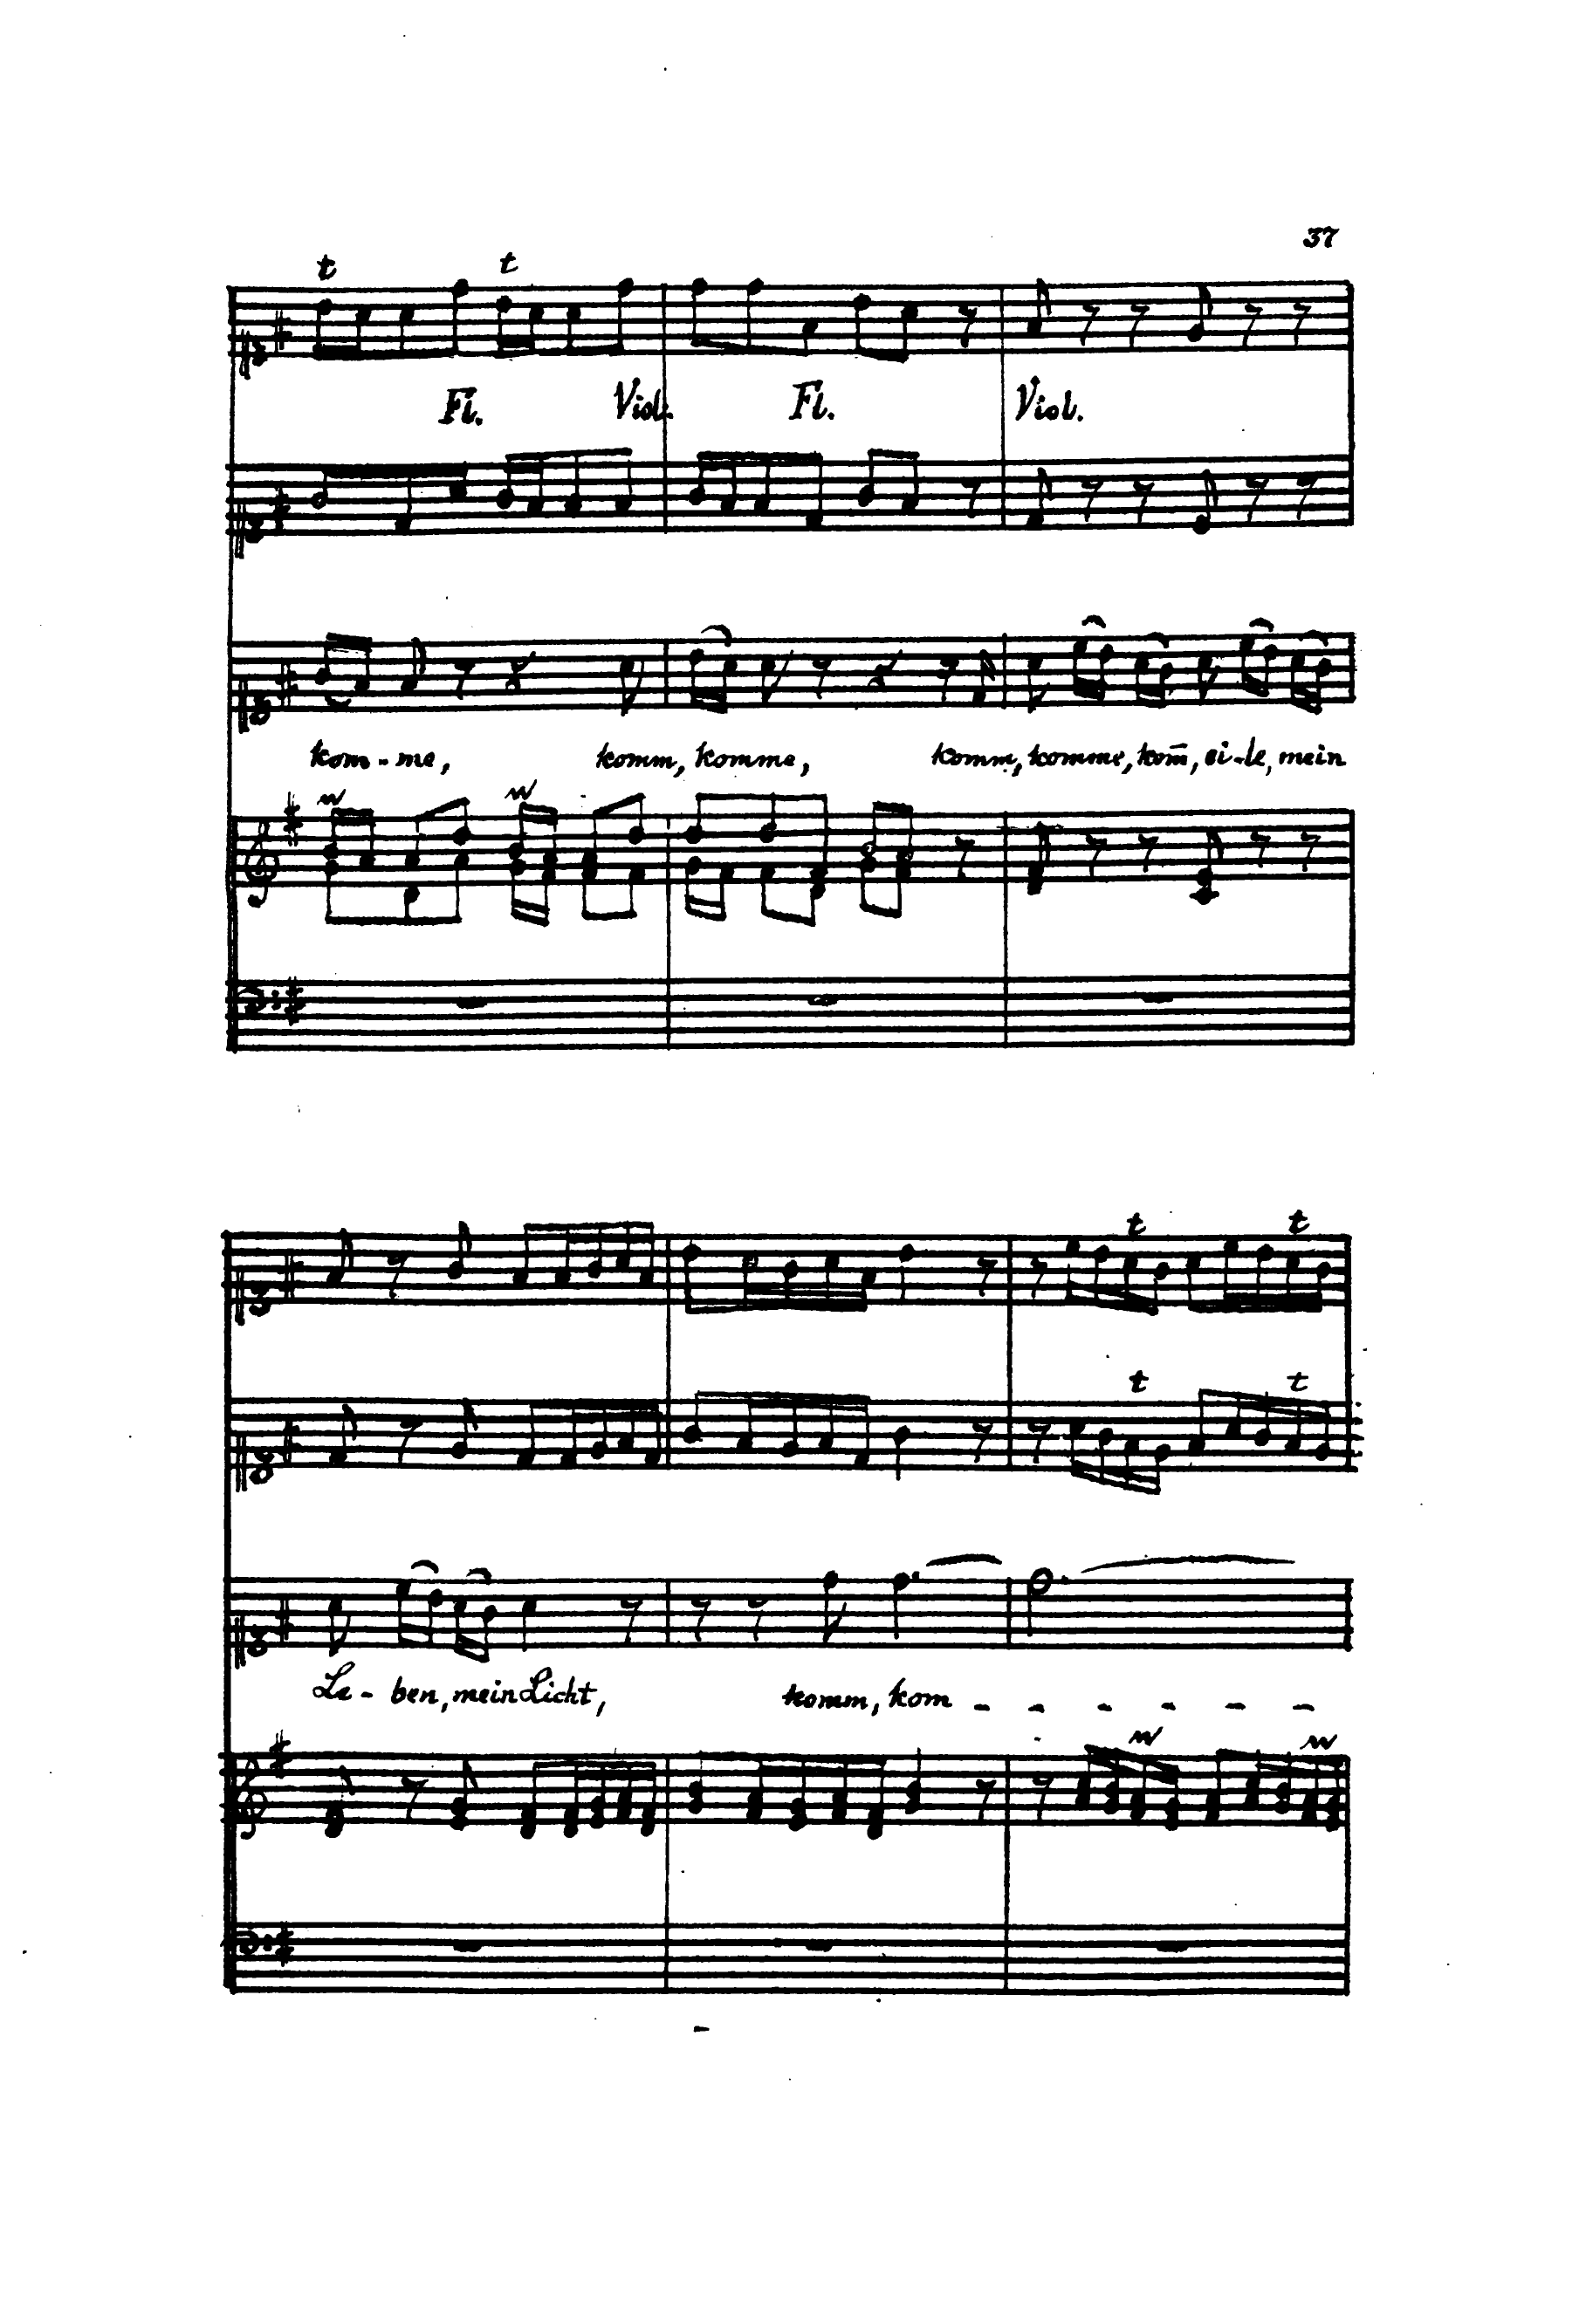 37
t t
Fl. Viol. Fl. Viol.
kom-me, komm, komme, komm, komme, kom̅, ei-le, mein
t t
t t
Le-ben, mein Licht, komm, kom - - - - - -